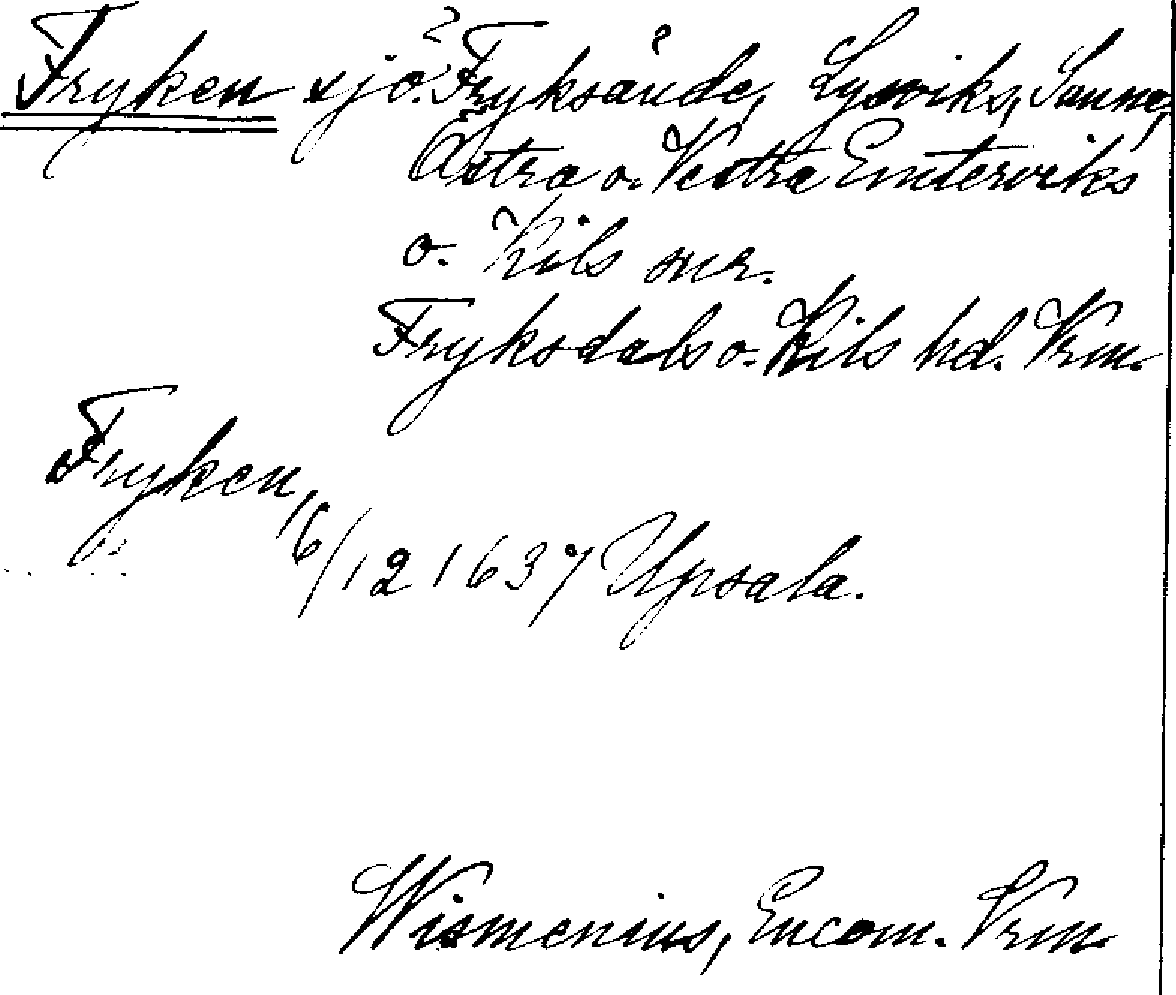 Fryken sjö. Fryksände, Lysviks, Sunne,
Östra o. Vestra Emterviks
o. Kils snr.
Fryksdals o. Kils hd. Vrm.
Fryken, 16/12 1637 Upsala.
Wismenius, Encom. Vrm.